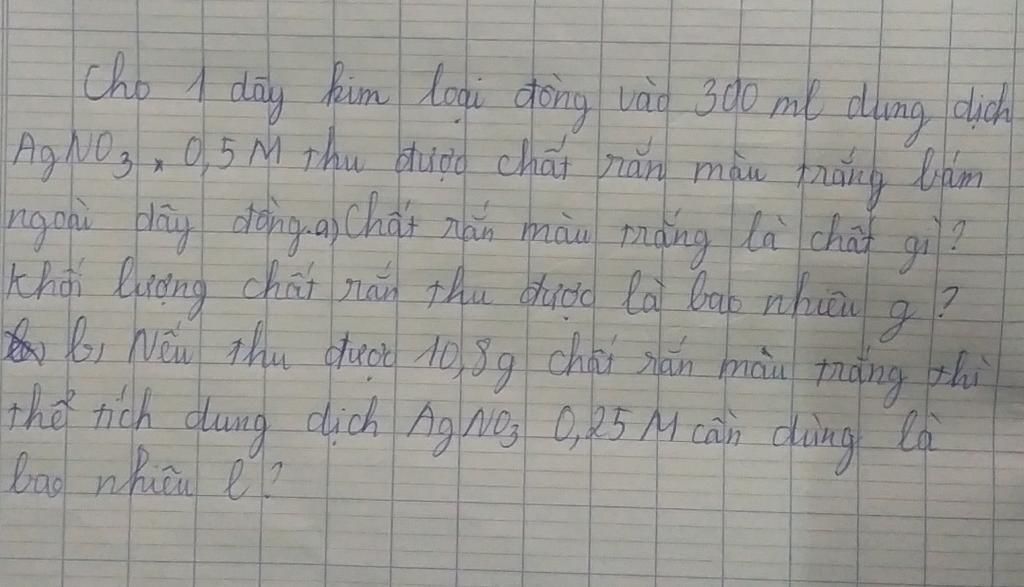 Cho 1 dây kim loại đồng vào 300 ml dung dịch
AgNO3 0,5 M thu được chất rắn màu trắng bám
ngoài dây đồng. a) Chất rắn màu trắng là chất gì?
Khối lượng chất rắn thu được là bao nhiêu g?
b, Nếu thu được 10,8g chất rắn màu trắng thì
thể tích dung dịch AgNO3 0,25 M cần dùng là
bao nhiêu l?